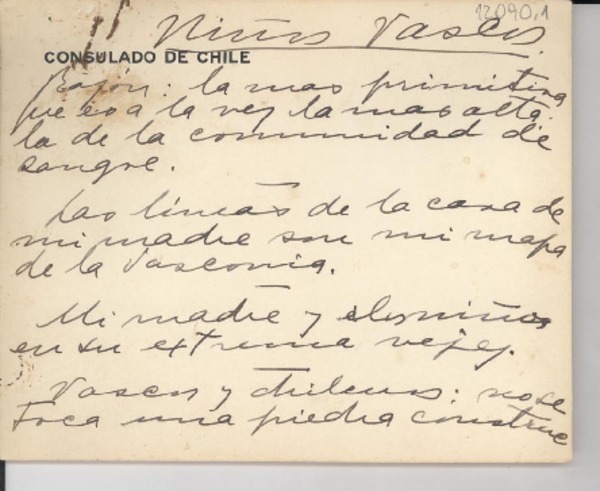 12090,1
Niños Vascos.
CONSULADO DE CHILE
Razón: la mas primitiva
que es a la vez la mas alta:
la de la comunidad de
sangre.
Las líneas de la cara de
mi madre son mi mapa
de la Vasconia.
Mi madre y los niños
en su extrema vejez.
Vascos y chilenos: no se
toca una piedra construc